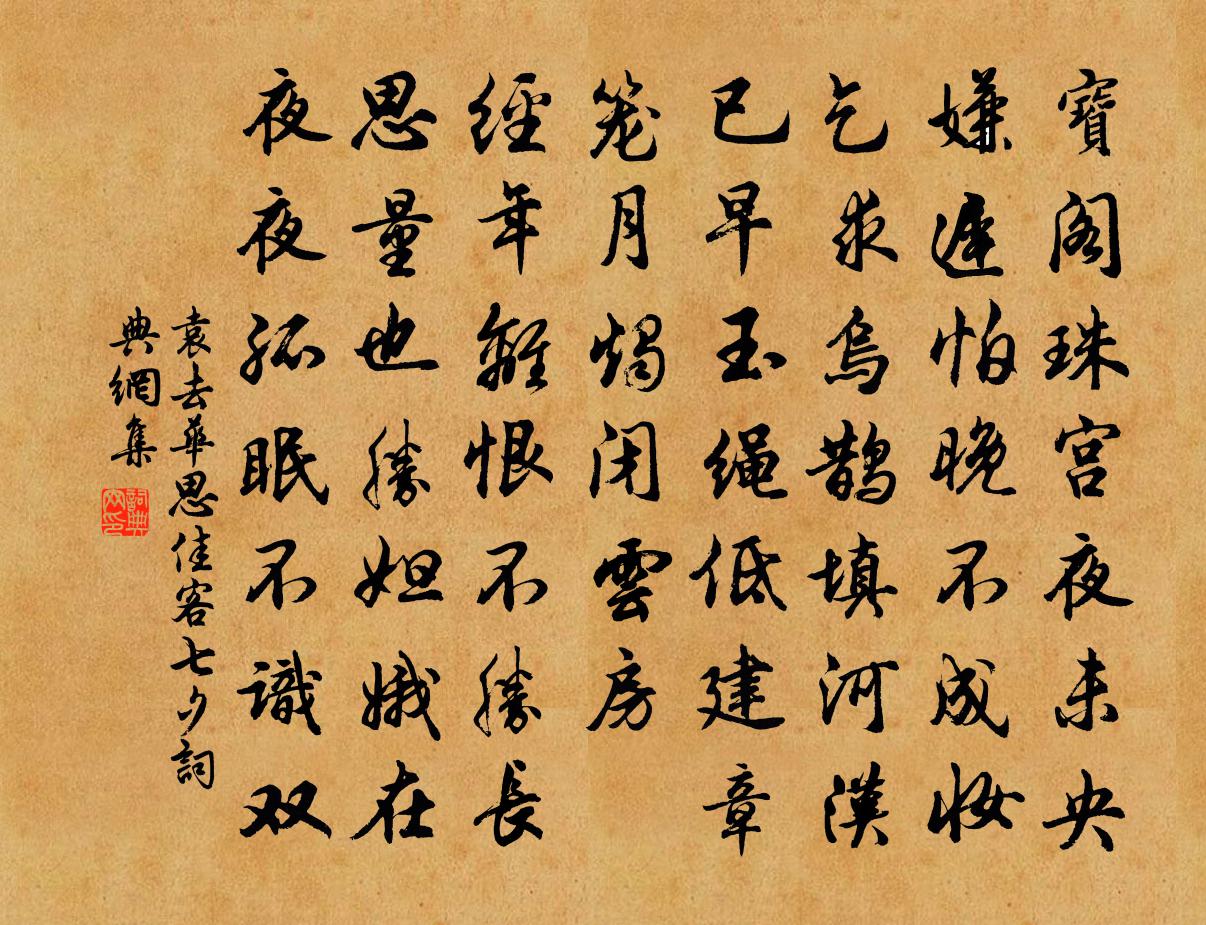 寶閣珠宮夜未央
嫌遲怕晚不成妝
乞求烏鵲填河漢
已早玉繩低建章
笼月燭闭雲房
經年離恨不勝長
思量也勝妲娥在
夜夜孤眠不識双
袁去華思佳客七夕詞
典網集
詞典網印